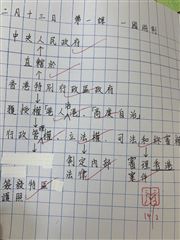 二月十三日 第一課 一國兩制
中央人民政府
直轄於
香港特別行政區政府
獲授權 港人治港,高度自治
行政管權 立法權 司法和終審權
制定內部 審理香港
法律 案件
簽發特區
護照
14/2